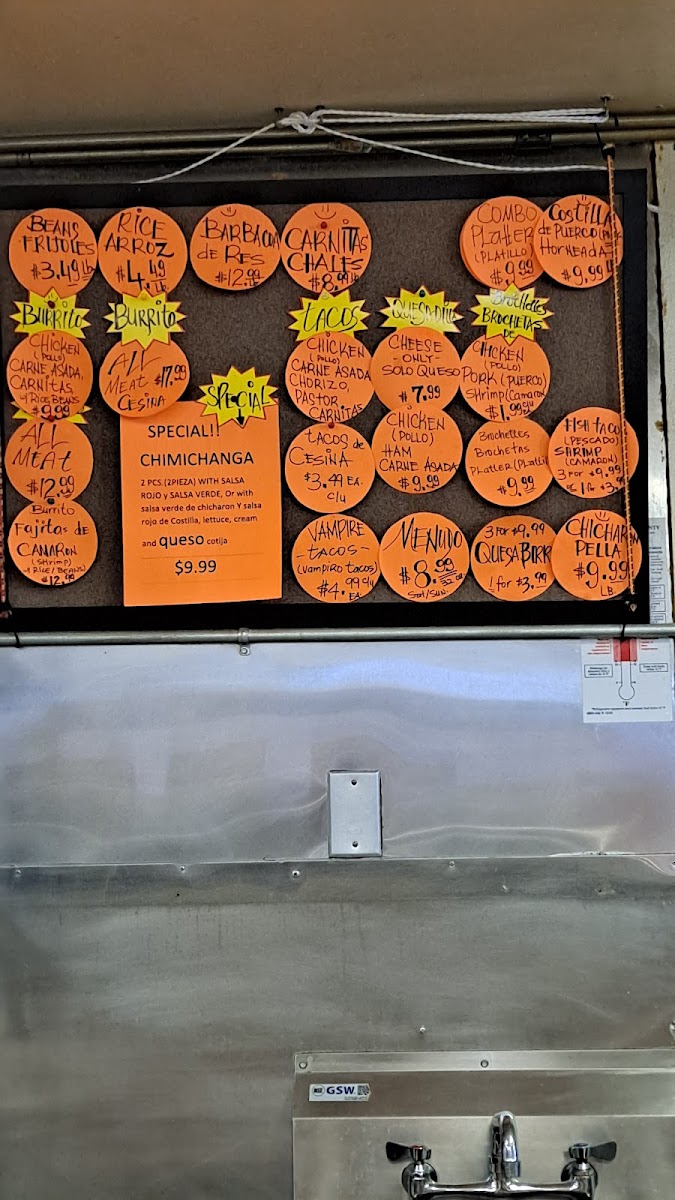 BEANS
FRIJOLES
$3.49 lb
RICE
ARROZ
$4.49
LB
BARBACOA
de RES
$12.99 lb
CARNITAS
CHALES
$8.99 lb
COMBO
PLATTER
(PLATILLO)
$9.99
COSTILLA
de PUERCO
HORNEADA
$9.99 lb
BURRITO
CHICKEN
(POLLO)
CARNE ASADA,
CARNITAS,
RICE BEANS
$9.99
ALL
MEAT
$12.99
Burrito
Fajitas de
CAMARON
(SHrimp)
RICE/BEANS
$12.99
BURRITO
ALL
MEAT $17.99
CESINA
SPECIAL
SPECIAL!!
CHIMICHANGA
2 PCS.(2PIEZA) WITH SALSA
ROJO y SALSA VERDE, Or with
salsa verde de chicharon Y salsa
roja de Costilla, lettuce, cream
and queso cotija
$9.99
TACOS
CHICKEN
(POLLO)
CARNE ASADA
CHORIZO,
PASTOR
CARNITAS
TACOS de
CESINA
$3.49 EA.
c/u
VAMPIRE
-TACOS-
(vampiro tacos)
$4.99 c/u
EA.
CHEESE
-ONLY-
SOLO QUESO
$7.99
CHICKEN
(POLLO)
HAM
CARNE ASADA
$9.99
MENUDO
$8.99
Sat/Sun.
Brochettes
BROCHETAS
DE
CHICKEN
(POLLO)
PORK (PUERCO)
SHrimp (Camaron)
$1.99
Brochettes
Brochetas
PLatter
$9.99
3 For $9.99
1 for $3.99
FISH TACO
(PESCADO)
SHRIMP
(CAMARON)
3 For $9.99
PELLA
$9.99
LB
GSW